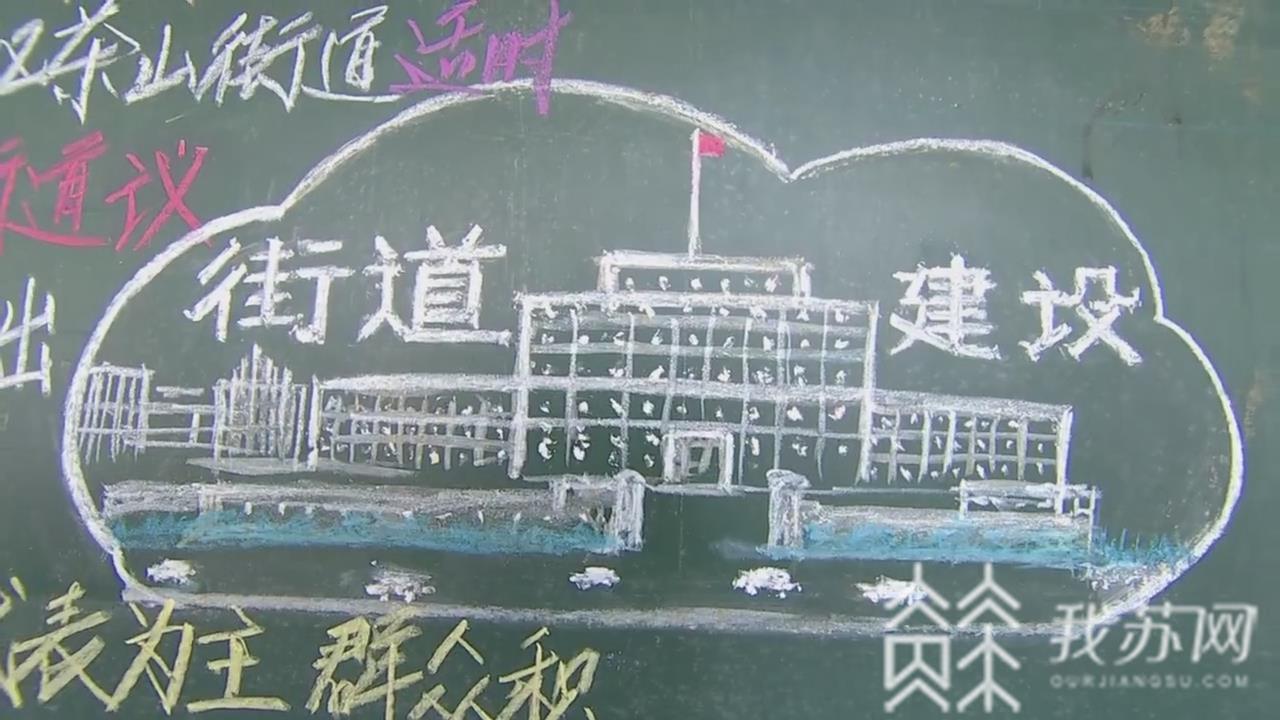 茶山街道适时
道议
街道 建设
出
表为主 群众积
我苏网
OURJIANGSU.COM